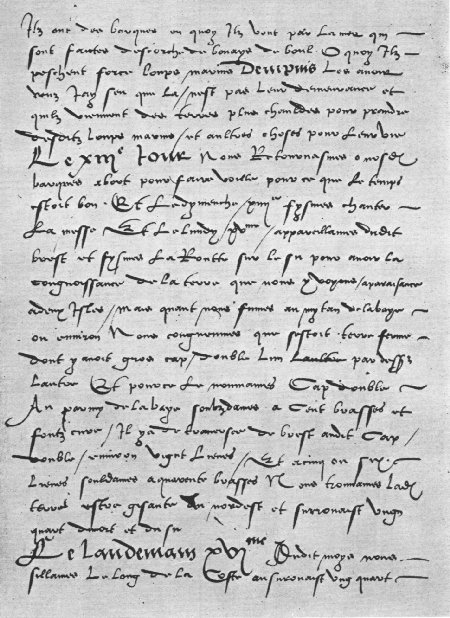 Ilz ont des barques en quoy ilz vont par la mer qui
sont faictes descorche de bouays de boul o quoy ilz
peschent force loups marins Dempuis les avoir
veuz jay seu que la / nest pas leur demeurance et
quilz viennent des terres plus chauldes pour prandre
desditz loups marins / et aultres choses pour leur vie
Le xiii^e Jour Nous Retournasmes o nosd.
barques abort pour faire voille pour ce que le temps
estoit bon · Et Le dymenche / xiiii^me fysmes chanter
La messe Et Le lundy / xv^me / appareillames dudit
brest et fysmes La Routte sur le su pour avoir la
congnoissance de la terre que nous y voyons / aparaisante
a deux Isles / mais quant nous fumes au mytan de la baye
ou environ Nous congneumes que sestoit terre ferme
dont y avoit gros cap / double Lun Laultre par dessus
Lautre Et pource Le nommames Cap double
Au parmy de la baye sondames a Cent brasses et
fontz cure / Il y a de traverse de brest audit Cap /
double / environ vignt Lieues / Et a cinq ou six
Lieues sondames a quarente brasses Nous trouvames Lad.
terre estre gisante Au nordest et surrouaist ung
quart du nort et du su
Le landemain xvi^me dudit moys nous
sillames Le long de la Coste au surouaist ung quart